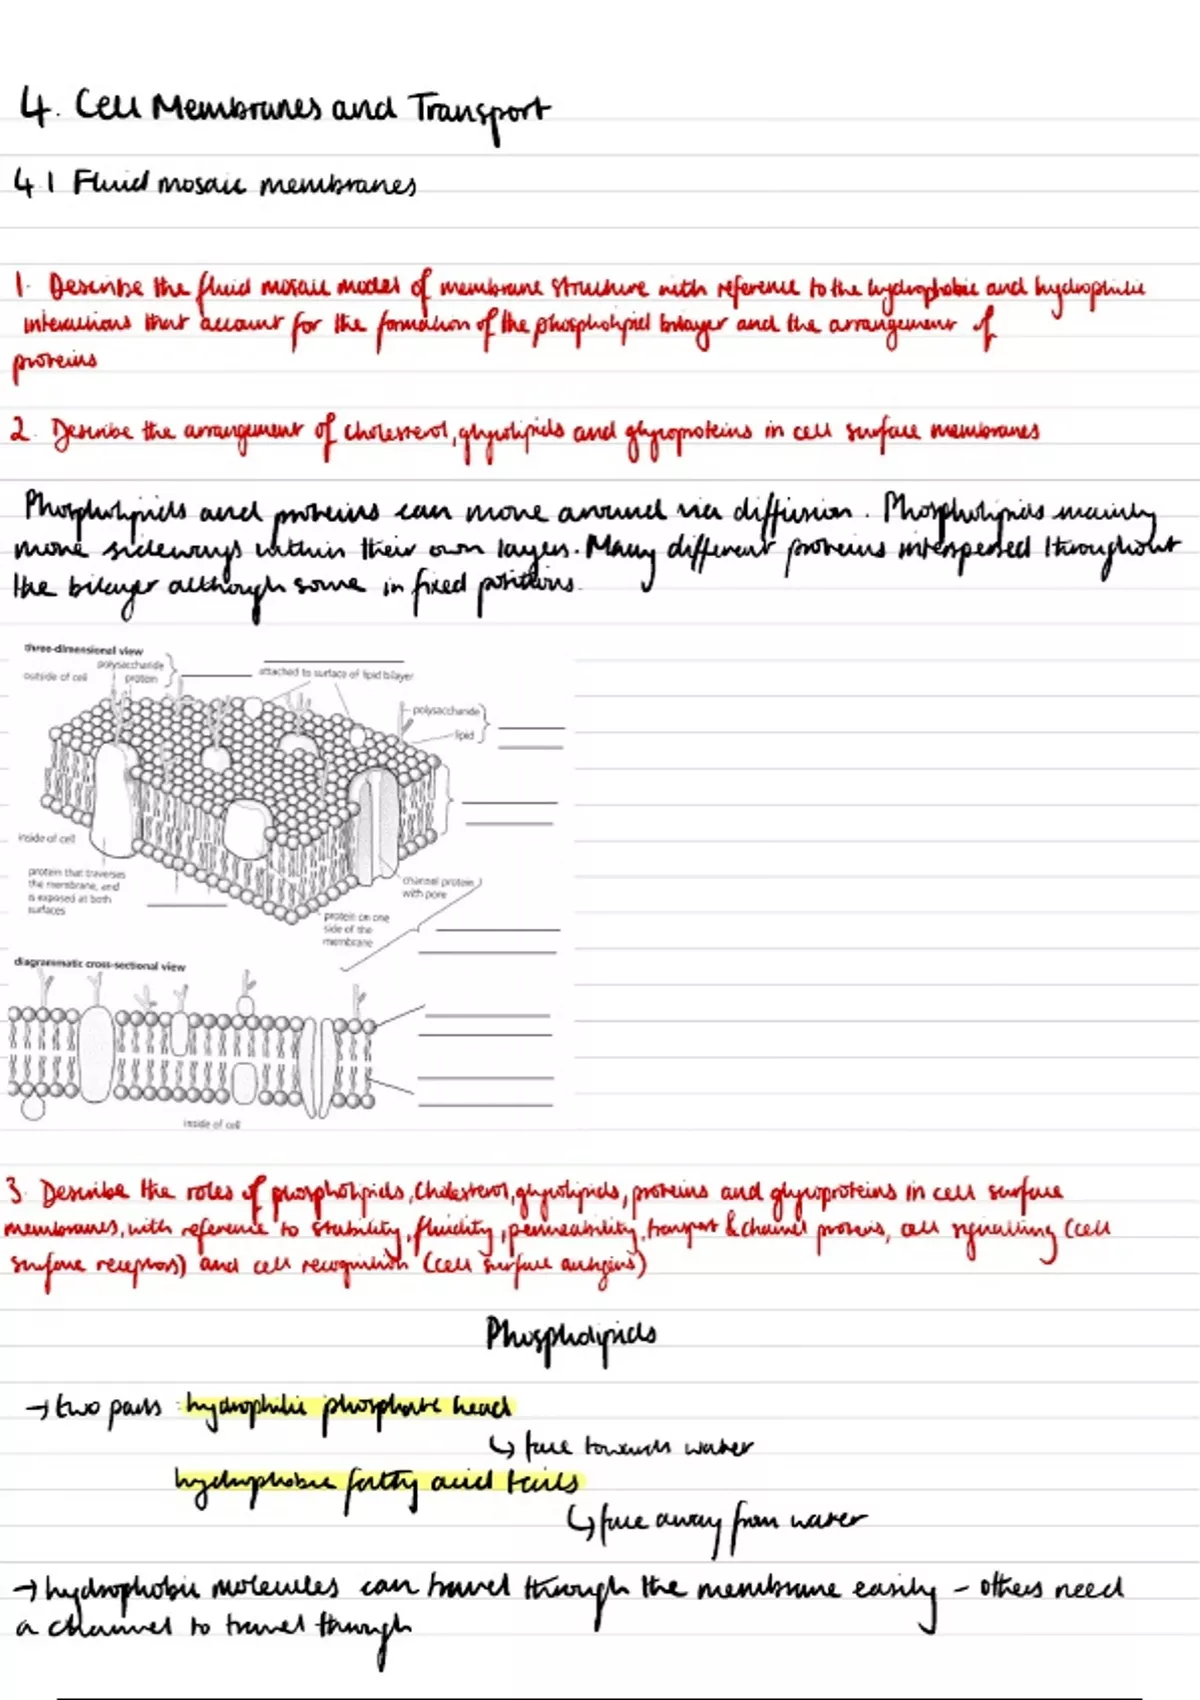 4. Cell Membranes and Transport
4.1 Fluid mosaic membranes
1. Describe the fluid mosaic model of membrane structure with reference to the hydrophobic and hydrophilic
interactions that account for the formation of the phospholipid bilayer and the arrangement of
proteins
2. Describe the arrangement of cholesterol, glycolipids and glycoproteins in cell surface membranes
Phospholipids and proteins can move around via diffusion. Phospholipids mainly
move sideways within their own layers. Many different proteins interspersed throughout
the bilayer although some in fixed positions.
three-dimensional view
outside of cell
polysaccharide
protein
attached to surface of lipid bilayer
polysaccharide
lipid
inside of cell
protein that traverses
the membrane, and
is exposed at both
surfaces
channel protein
with pore
protein on one
side of the
membrane
diagrammatic cross-sectional view
inside of cell
3. Describe the roles of phospholipids, cholesterol, glycolipids, proteins and glycoproteins in cell surface
membranes, with reference to stability, fluidity, permeability, transport & channel proteins, cell signalling (cell
surface receptors) and cell recognition (cell surface antigens)
Phospholipids
→ two parts : hydrophilic phosphate head
↳ face towards water
hydrophobic fatty acid tails
↳ face away from water
→ hydrophobic molecules can travel through the membrane easily - others need
a channel to travel through